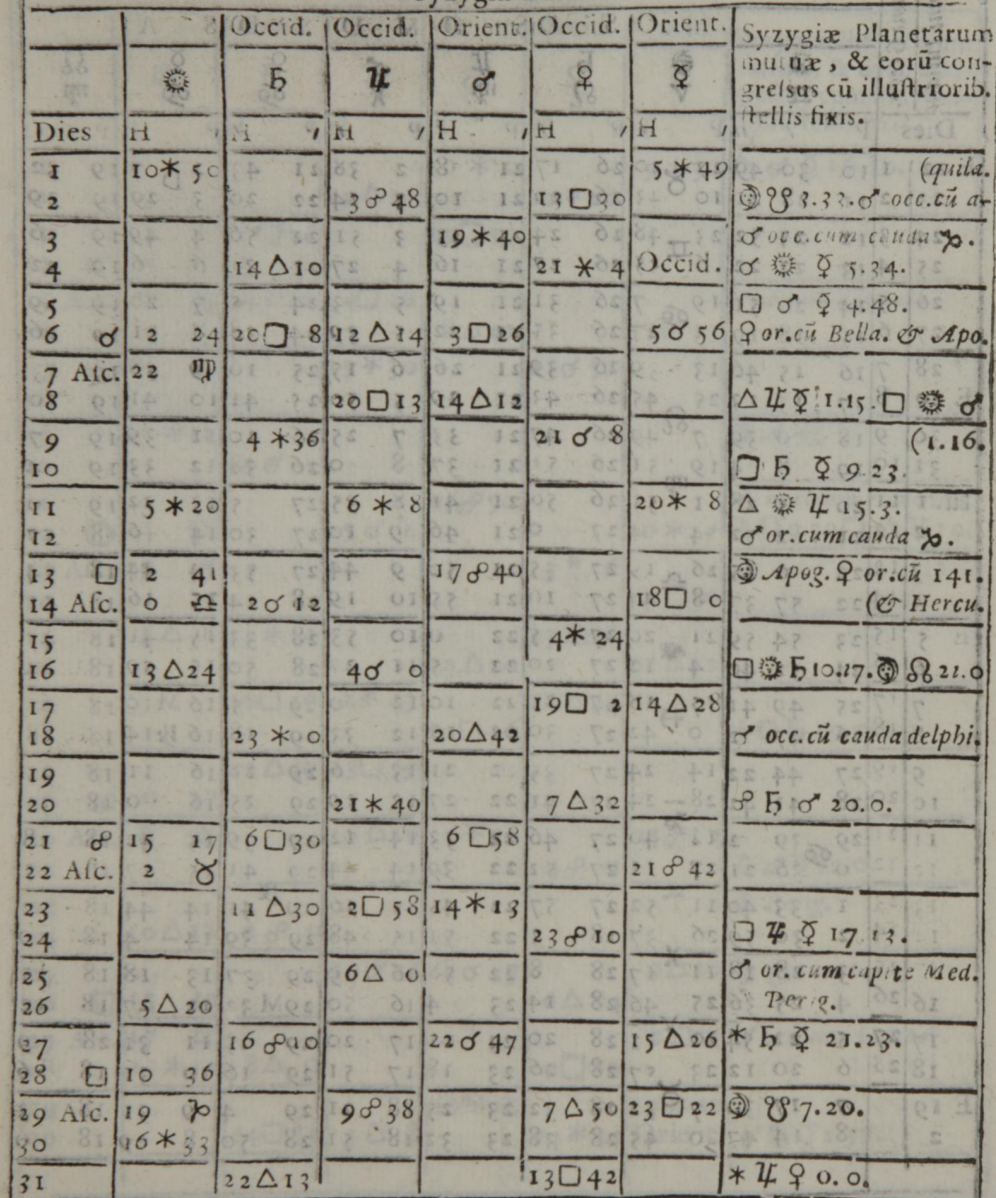 Occid. Occid. Orient. Occid. Orient. Syzygiæ Planetarum
mutuæ, & eorū con-
☼ ♄ ♃ ♂ ♀ ☿ greſsus cū illuſtriorib.
ſtellis fixis.
Dies H ′ H ′ H ′ H ′ H ′ H ′
1 10⚹50 5⚹49 (quila.
2 3☍48 13□30 ☋ 3.33. ♂ occ.cū a-
3 19⚹40 ♂ occ.cum cauda ♑.
4 14△10 21⚹4 Occid. ☌ ☼ ☿ 5.34.
5 □ ♂ ☿ 4.48.
6 ☌ 2 24 20□8 12△14 3□26 5☌56 ♀ or.cū Bella. & Apo.
7 Aſc. 22 ♍
8 20□13 14△12 △♃☿ 1.15. □ ☼ ♂
9 4⚹36 21☌8 (1.16.
10 □ ♄ ☿ 9.23.
11 5⚹20 6⚹8 20⚹8 △ ☼ ♃ 15.3.
12 ♂ or.cum cauda ♑.
13 □ 2 41 17☍40 Apog. ♀ or.cū 141.
14 Aſc. 0 ♎ 2☌12 18□0 (& Hercu.
15 4⚹24
16 13△24 4☌0 □☼♄ 10.17. ☊ 21.0
17 19□2 14△28
18 23⚹0 20△42 ♂ occ.cū cauda delphi.
19
20 21⚹40 7△32 ☍ ♄ ♂ 20.0.
21 ☍ 15 17 6□30 6□58
22 Aſc. 2 ♉ 21☍42
23 11△30 2□58 14⚹13
24 23☍10 □ ♃ ☿ 17.12.
25 6△0 ♂ or. cum capite Med.
26 5△20 Perig.
27 16☍10 22☌47 15△26 ⚹ ♄ ☿ 21.23.
28 □ 10 36
29 Aſc. 19 ♑ 9☍38 7△50 23□22 ☋ 7.20.
30 16⚹33
31 22△13 13□42 ⚹ ♃ ♀ 0.0.